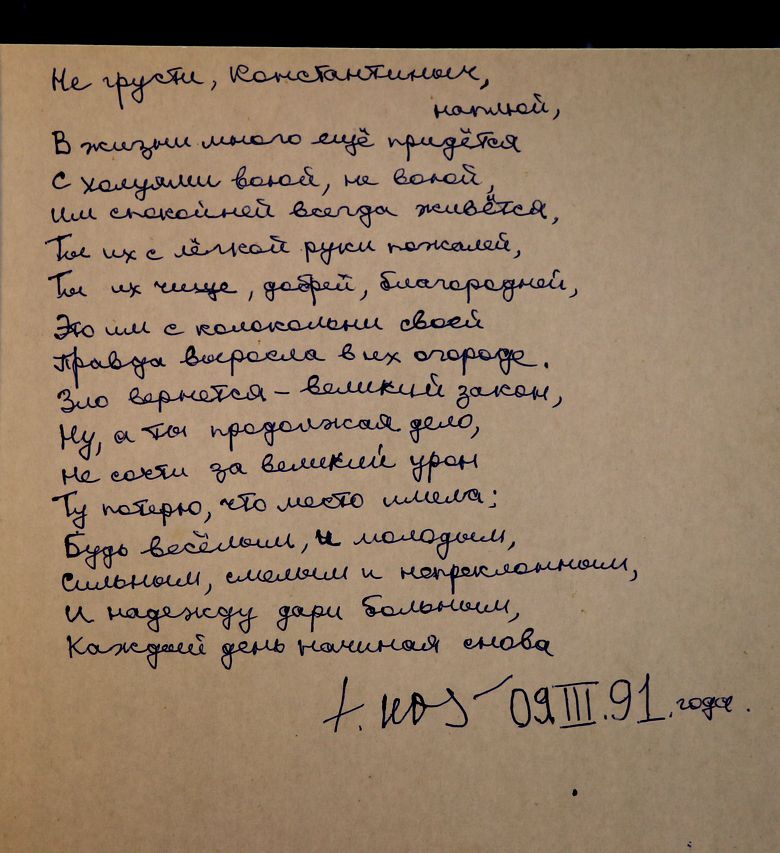 Не грусти, Константиныч,
наплюй,
В жизни много ещё придётся
С холуями воюй, не воюй,
Им спокойней всегда живётся,
Ты их с лёгкой руки пожалей,
Ты их чище, добрей, благородней,
Это им с колокольни своей
Правда выросла в их огороде.
Зло вернется – великий закон,
Ну, а ты продолжая дело,
Не сочти за великий урон
Ту потерю, что место имела;
Будь весёлым, и молодым,
Сильным, смелым и непреклонным,
И надежду дари больным,
Каждый день начиная снова
09.III.91. года.